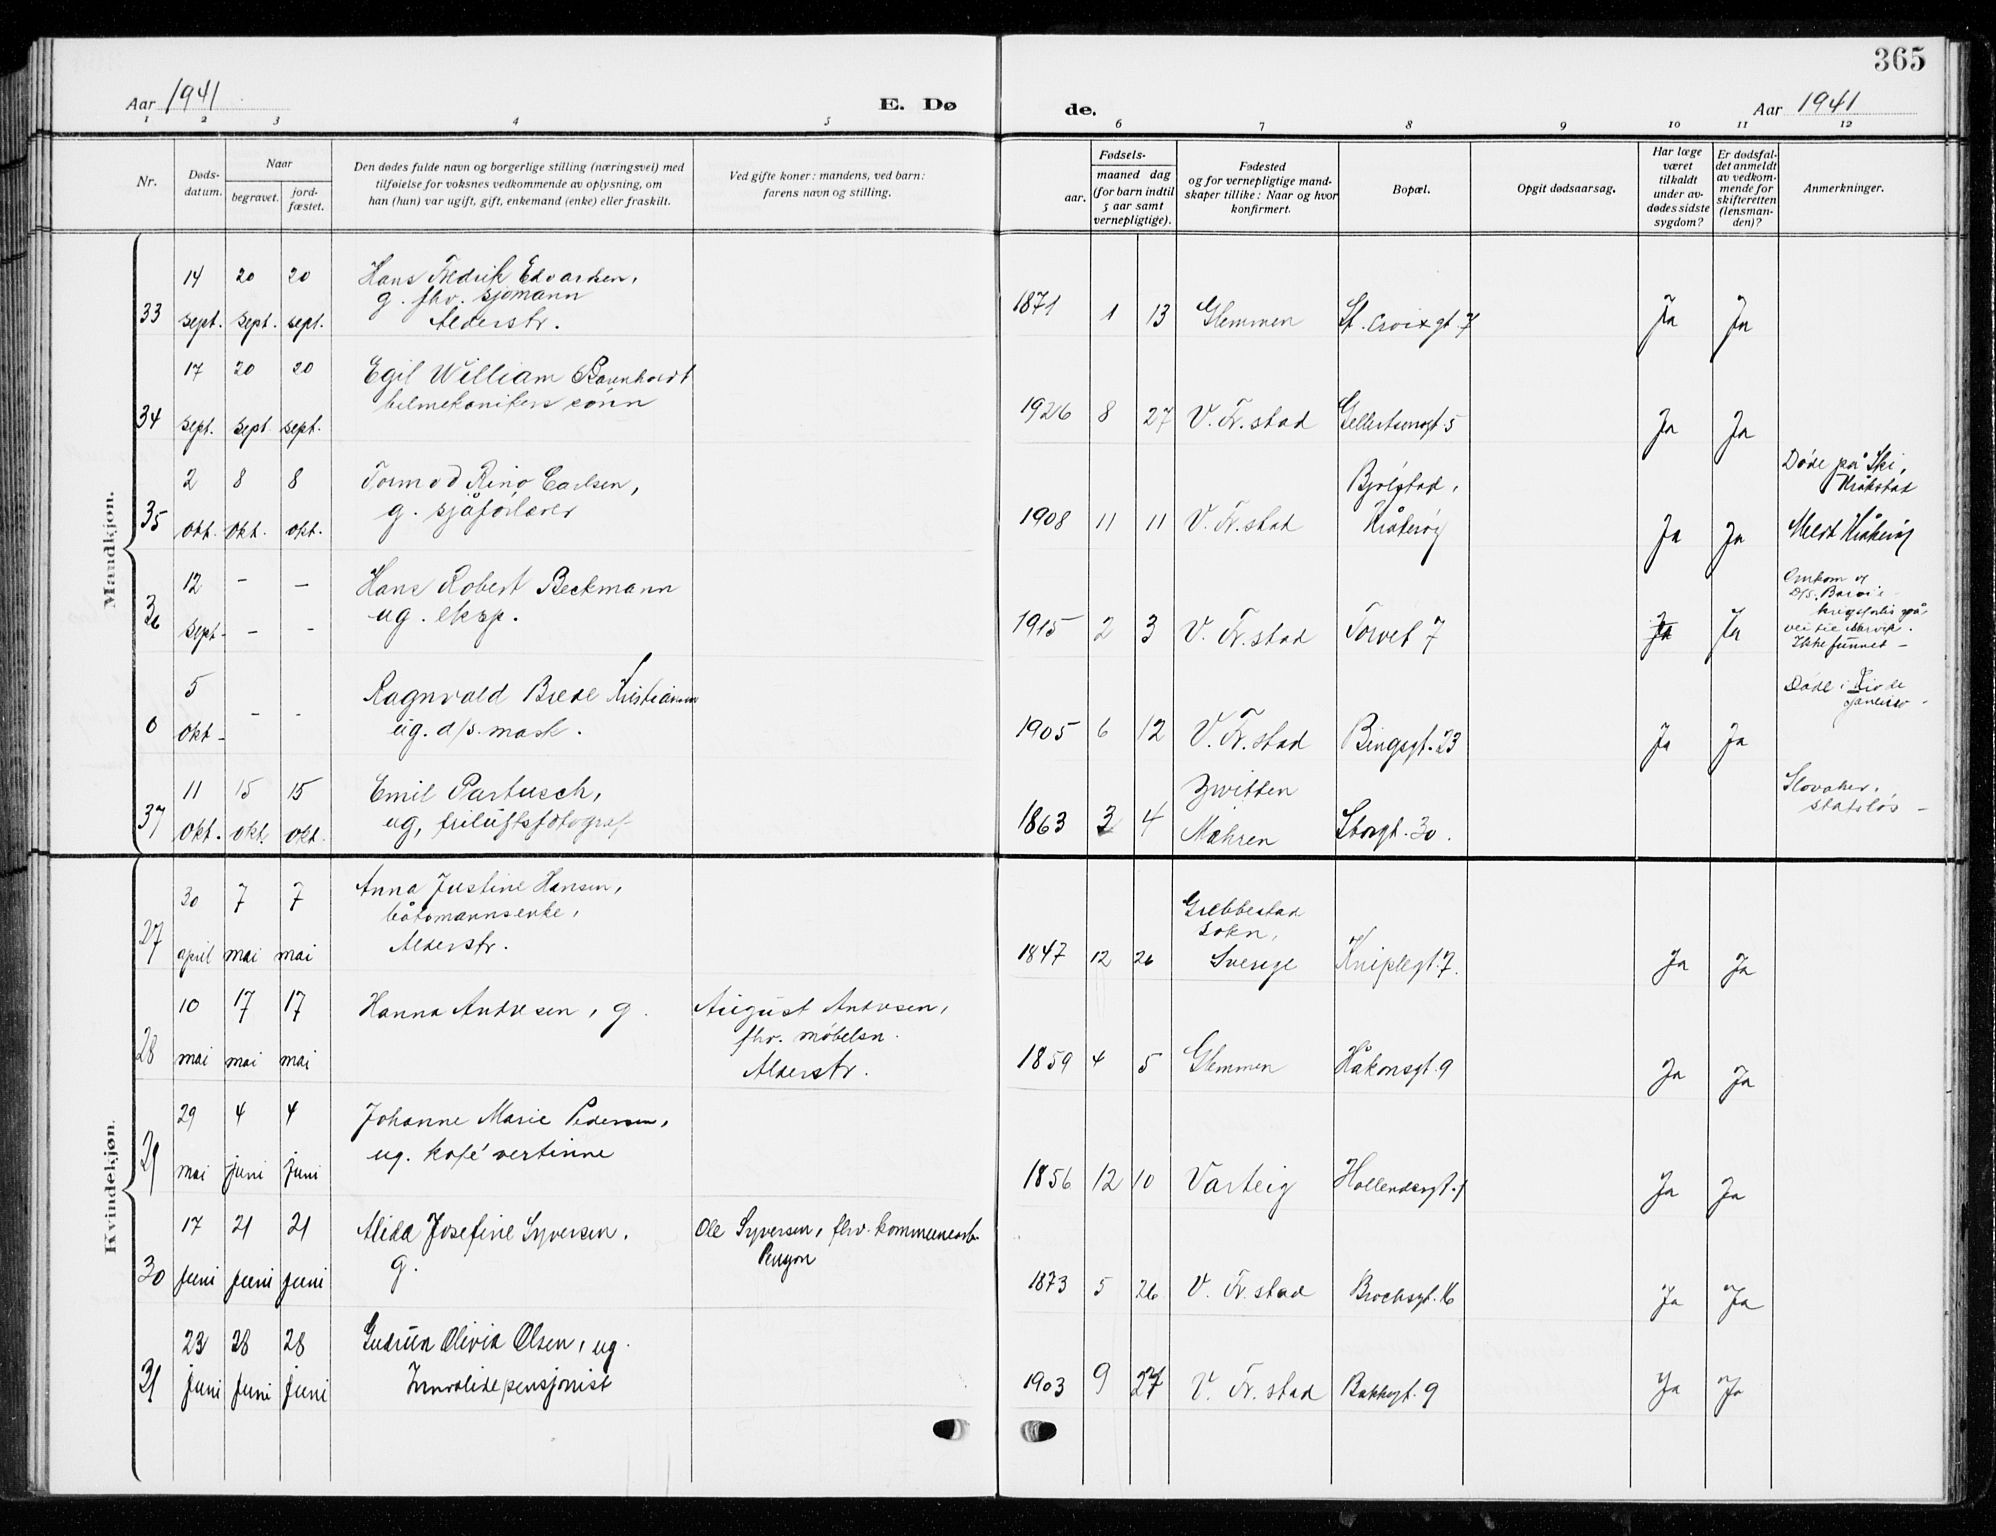 365
Aar 1941
E. Dø
de.
Aar 1941
1 2 3 4 5 6 7 8 9 10 11 12
Nr.
Døds-
datum.
Naar
begravet.
jord-
fæstet.
Den dødes fulde navn og borgerlige stilling (næringsvei) med
tilføielse for voksnes vedkommende av oplysning, om
han (hun) var ugift, gift, enkemand (enke) eller fraskilt.
Ved gifte koner: mandens, ved barn:
farens navn og stilling.
Fødsels-
aar.
maaned dag
(for barn indtil
5 aar samt
vernepligtige).
Fødested
og for vernepligtige mand-
skaper tillike: Naar og hvor
konfirmert.
Bopæl.
Opgit dødsaarsag.
Har læge
været
tilkaldt
under av-
dødes sidste
sygdom?
Er dødsfal-
det anmeldt
av vedkom-
mende for
skifteretten
(lensman-
den)?
Anmerkninger.
Mandkjøn.
33
14 20 20
sept. sept. sept.
Hans Fredrik Edvardsen,
g. fhv. sjømann
Alderstr.
1871 1 13 Glemmen St. Croixgt. 7 Ja Ja
34
17 20 20
sept. sept sept.
Egil William
bilmekanikers sønn
1926 8 27 V. Fr.stad Gellertsensgt. 5 Ja Ja
35
2 8 8
okt. okt. okt.
Tormod Rino Carlsen,
g. sjåførlærer
1908 11 11 V. Fr.stad
Bjølstad,
Kråkerøy
Ja Ja
Døde på Ski,
Kråkstad
Meldt Kråkerøy
36
12 – –
sept – – –
Hans Robert Beckmann
ug. eksp.
1915 2 3 V. Fr.stad Torvet 7 Ja Ja
Omkom v/
D/S. Barøi's
krigsforlis på
vei til Narvik.
Ikke funnet –
0
5
okt – – –
Ragnvald Brede Kristiansen
ug. d/s. mask.
1905 6 12 V. Fr.stad Bingsgt. 23 Ja Ja
Døde i Rio de
Janeiro –
37
11 15 15
okt. okt. okt.
Emil Partusch,
ug, friluftsfotograf
1863 3 4
Zwitten
Mahren
Storgt. 30.
Slovaker,
statsløs –
Kvindekjøn.
27
30 7 7
april mai mai
Anna Justine Hansen,
båtsmannsenke,
Alderstr.
1847 12 26
Grebbestad
sokn,
Sverige
Kniplegt. 7. Ja Ja
28
10 17 17
mai mai mai
Hanna Andresen, g.
August Andresen,
fhv. møbelsn.
Alderstr.
1859 4 5 Glemmen Håkonsgt. 9 Ja Ja
29
29 4 4
mai juni juni
Johanne Marie Pedersen,
ug. kafévertinne
1856 12 10 Varteig Hollendergt. 1 Ja Ja
30
17 21 21
juni juni juni
Alida Josefine Syversen,
g.
Ole Syversen, fhv. kommunearb.
Pensjon
1873 5 26 V. Fr.stad Brochsgt. 16 Ja Ja
31
23 28 28
juni juni juni
Gudrun Olivia Olsen, ug.
Innvalidepensjonist
1903 9 27 V. Fr.stad Bakkegt. 9 Ja Ja